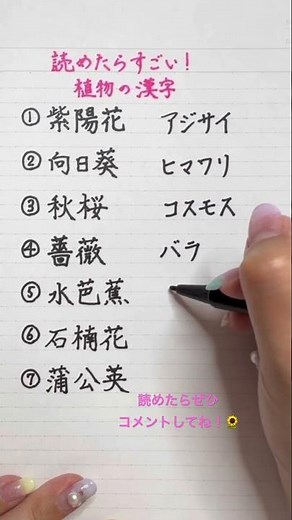 読めたらすごい!
植物の漢字
①紫陽花 アジサイ
②向日葵 ヒマワリ
③秋桜 コスモス
④薔薇 バラ
⑤水芭蕉
⑥石楠花
⑦蒲公英
読めたらぜひ
コメントしてね!🌻